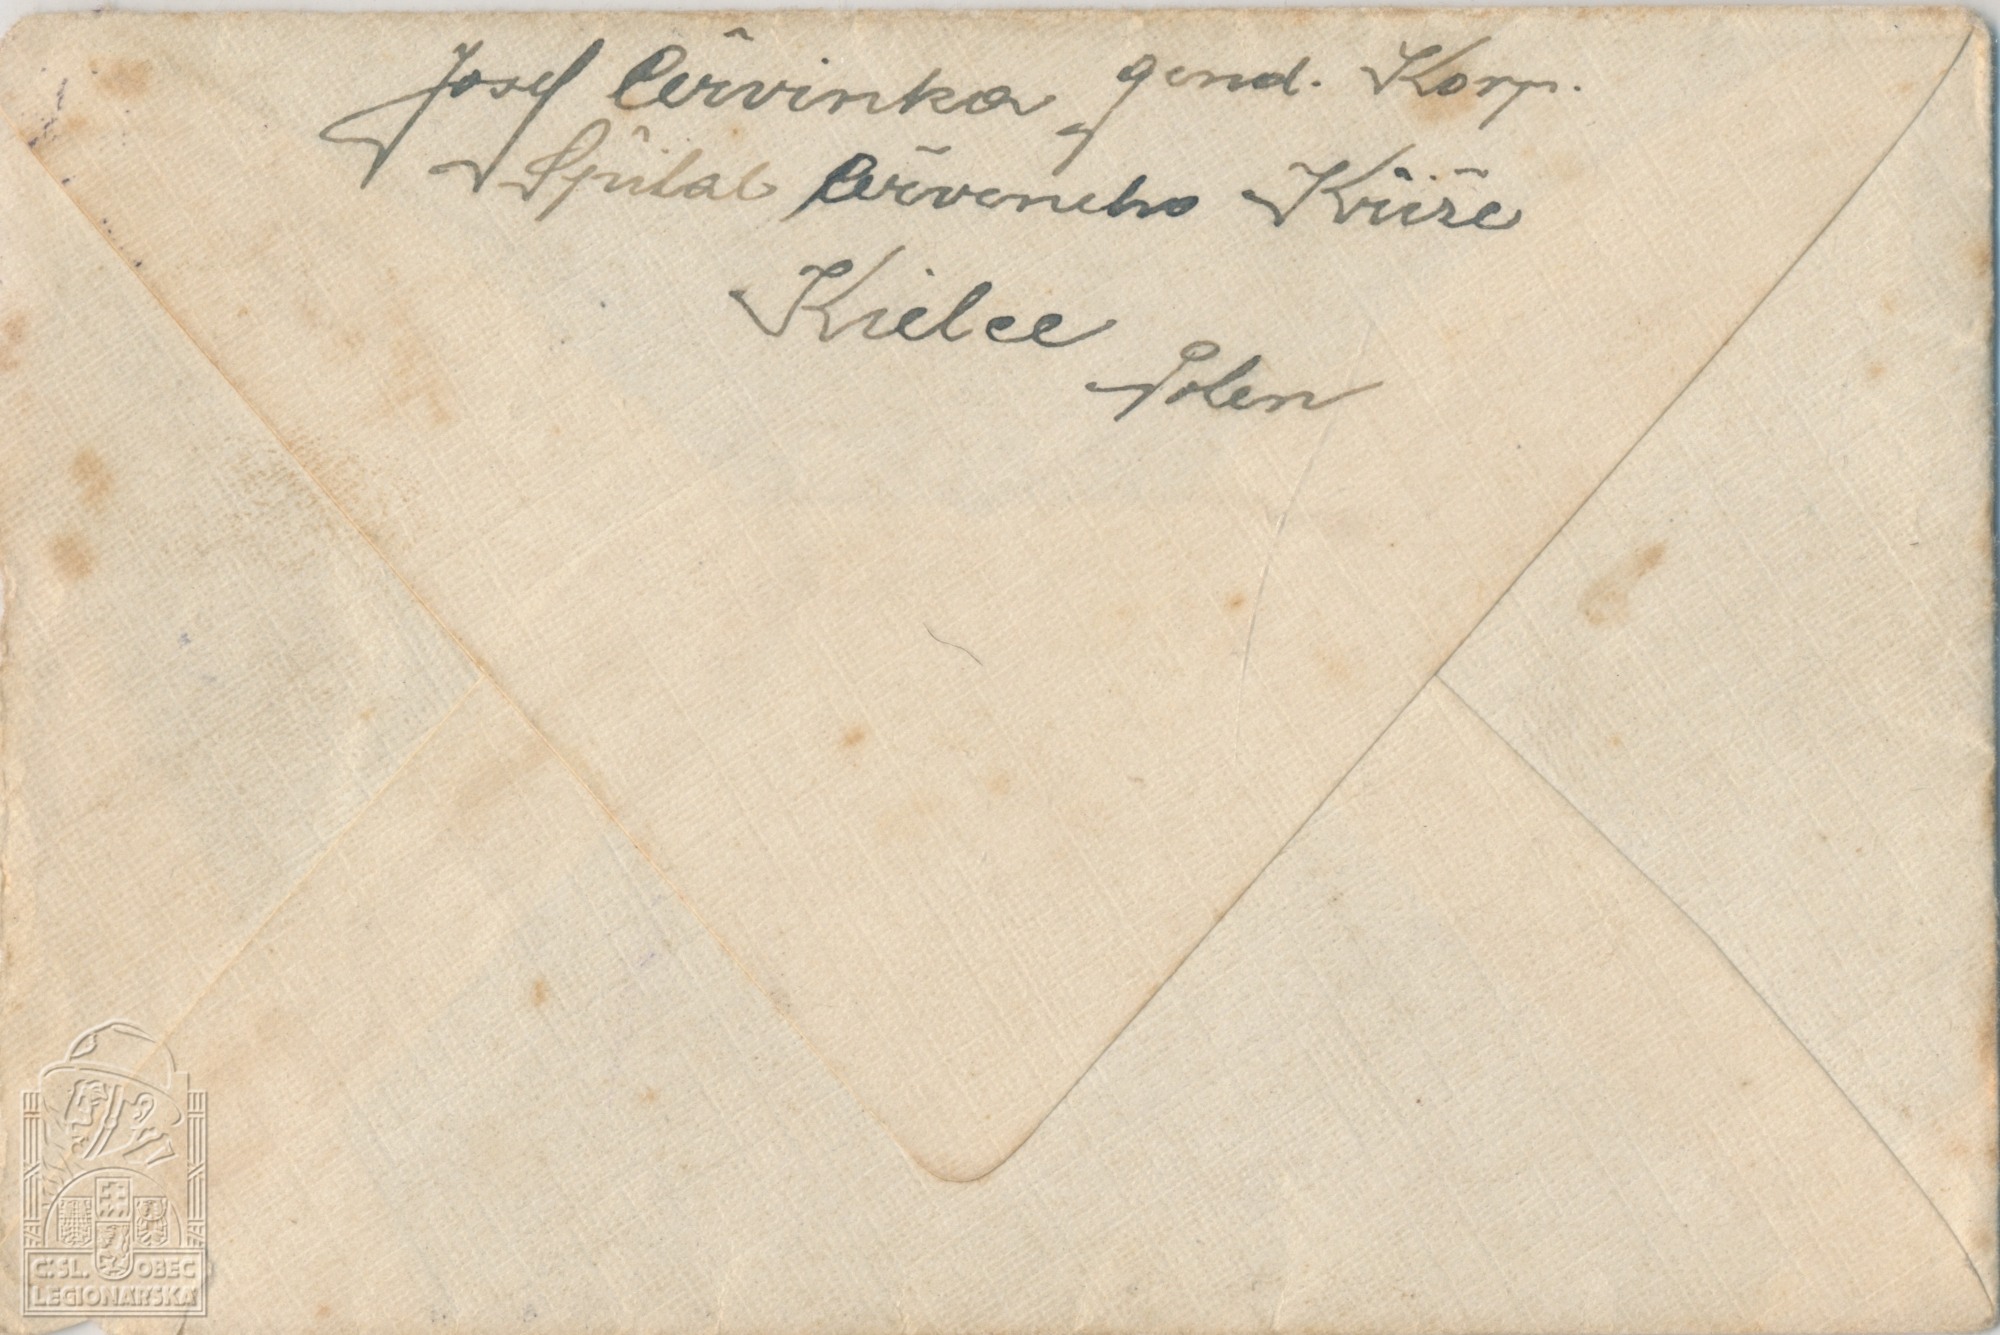 Josef Červinka gend. Korp.
Špital Červeneho Kříže
Kielce
Polen
Č:SL. OBEC
LEGIONÁŘSKÁ